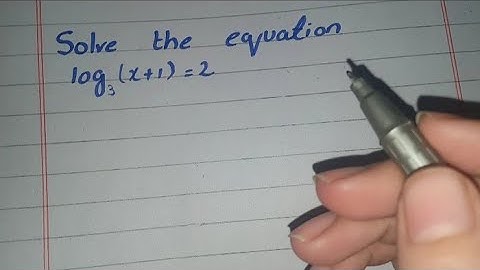 Solve the equation
log₃(x+1)=2